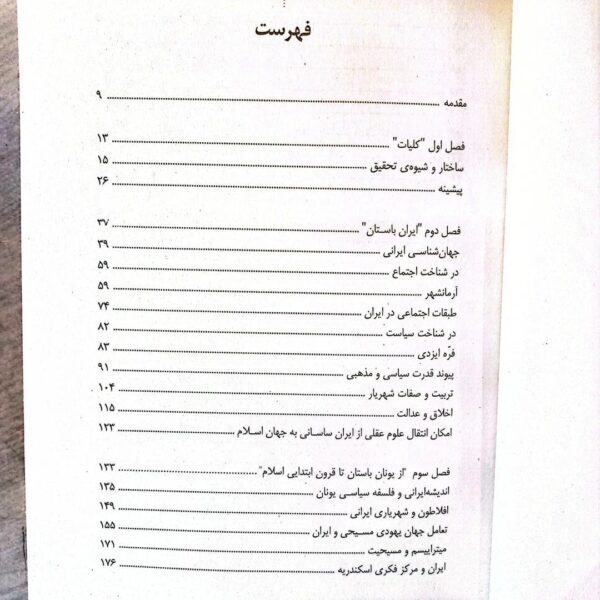 فهرست
مقدمه ........ ۹
فصل اول "کلیات" ........ ۱۳
ساختار و شیوه‌ی تحقیق ........ ۱۵
پیشینه ........ ۲۶
فصل دوم "ایران باستان" ........ ۳۷
جهان‌شناسی ایرانی ........ ۳۹
در شناخت اجتماع ........ ۵۹
آرمانشهر ........ ۵۹
طبقات اجتماعی در ایران ........ ۷۴
در شناخت سیاست ........ ۸۲
فرّه ایزدی ........ ۸۳
پیوند قدرت سیاسی و مذهبی ........ ۹۱
تربیت و صفات شهریار ........ ۱۰۴
اخلاق و عدالت ........ ۱۱۵
امکان انتقال علوم عقلی از ایران ساسانی به جهان اسلام ........ ۱۲۳
فصل سوم "از یونان باستان تا قرون ابتدایی اسلام" ........ ۱۳۳
اندیشه‌ایرانی و فلسفه سیاسی یونان ........ ۱۳۵
افلاطون و شهریاری ایرانی ........ ۱۴۹
تعامل جهان یهودی مسیحی و ایران ........ ۱۵۵
میتراییسم و مسیحیت ........ ۱۷۱
ایران و مرکز فکری اسکندریه ........ ۱۷۶